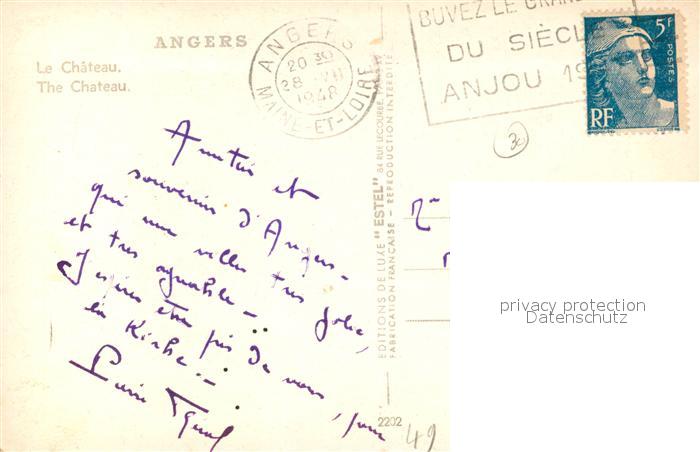 ANGERS
Le Château.
The Chateau.
ANGERS
20 30
28 VII
1948
MAINE-ET-LOIRE
BUVEZ LE GRAND
DU SIÈCL
ANJOU 19
5F
POSTES
RF
30
Amitiés et
souvenirs d'Angers -
qui une ville très jolie,
et très agréable -
J'espère être près de vous, pour
la
Pierre
EDITIONS DE LUXE "ESTEL" 84 RUE LECOURBE,
FABRICATION FRANÇAISE - REPRODUCTION INTERDITE
2202
49
privacy protection
Datenschutz